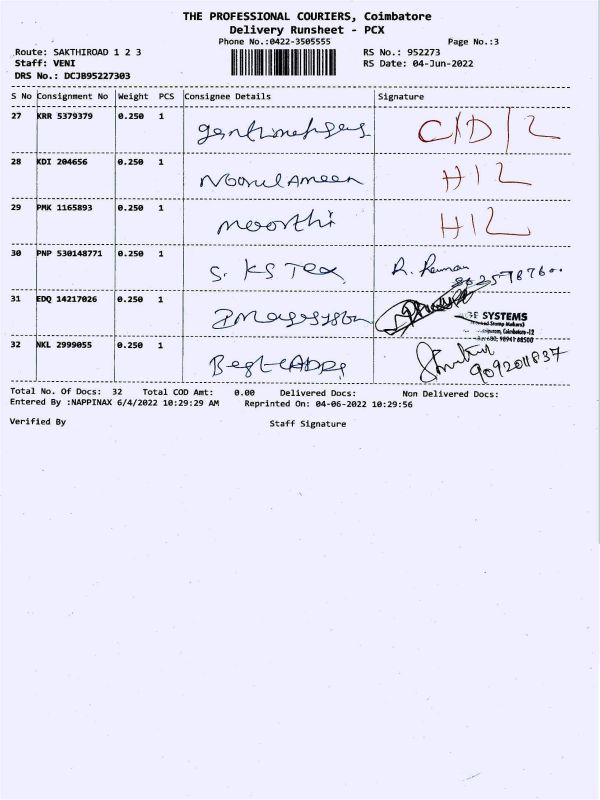 THE PROFESSIONAL COURIERS, Coimbatore
Delivery Runsheet - PCX
Phone No.:0422-3505555 Page No.:3
Route: SAKTHIROAD 1 2 3 RS No.: 952273
Staff: VENI RS Date: 04-Jun-2022
DRS No.: DCJB95227303
S No Consignment No Weight PCS Consignee Details Signature
27 KRR 5379379 0.250 1 C/D/2
28 KDI 204656 0.250 1 Noorul Ameen H12
29 PMK 1165893 0.250 1 moorthi H12
30 PNP 530148771 0.250 1 S. KS Tex R. Raman
31 EDQ 14217026 0.250 1
GE SYSTEMS
32 NKL 2999055 0.250 1 9092011837
Total No. Of Docs: 32 Total COD Amt: 0.00 Delivered Docs: Non Delivered Docs:
Entered By :NAPPINAX 6/4/2022 10:29:29 AM Reprinted On: 04-06-2022 10:29:56
Verified By Staff Signature